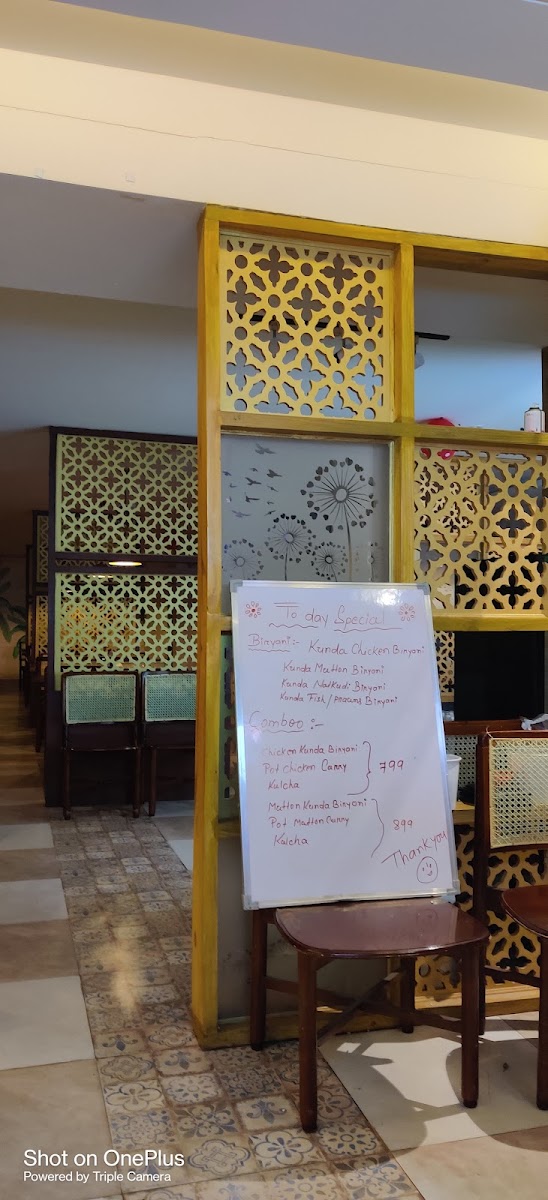 To day Special
Biryani:- Kunda Chicken Biryani
Kunda Mutton Biryani
Kunda Natkodi Biryani
Kunda Fish/prawns Biryani
Comboo :-
Chicken Kunda Biryani
Pot chicken Curry 799
Kulcha
Mutton Kunda Biryani
Pot Mutton Curry 899
Kulcha
Thank you
Shot on OnePlus
Powered by Triple Camera